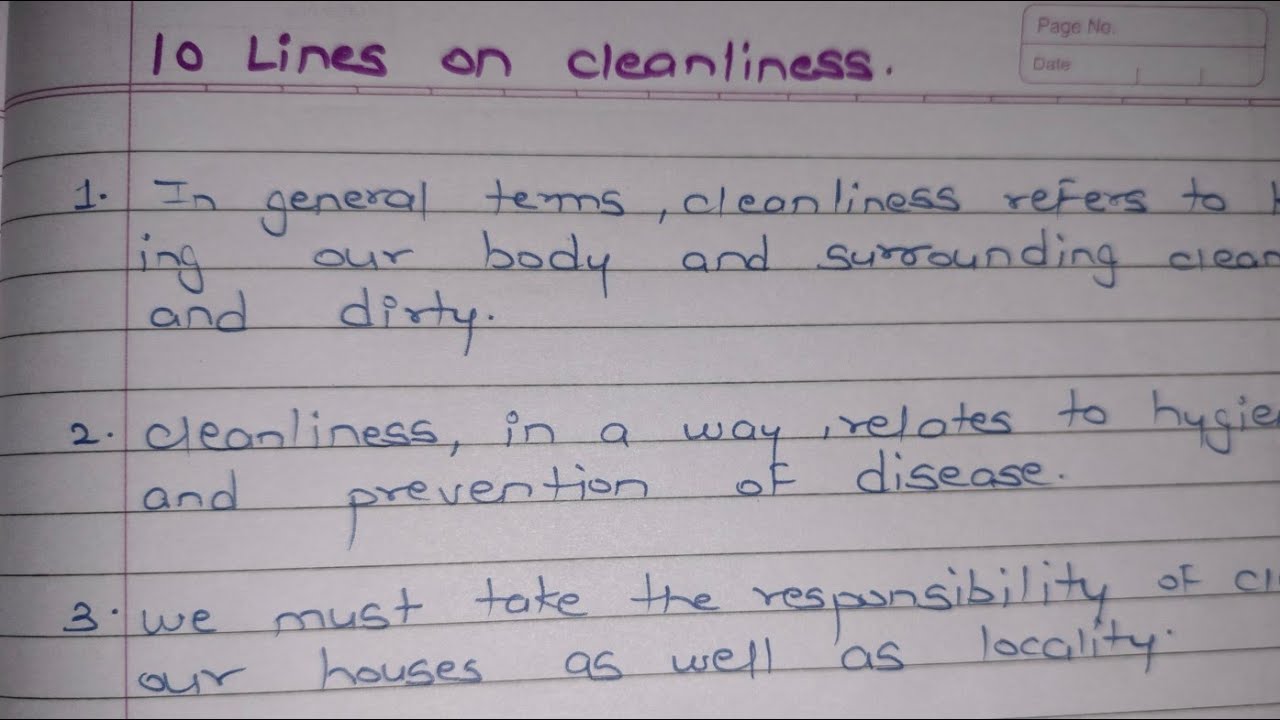 Page No.
Date
10 Lines on cleanliness.
1. In general terms, cleanliness refers to
ing our body and surrounding clean
and dirty.
2. cleanliness, in a way, relates to hygie
and prevention of disease.
3. we must take the responsibility of cl
our houses as well as locality.